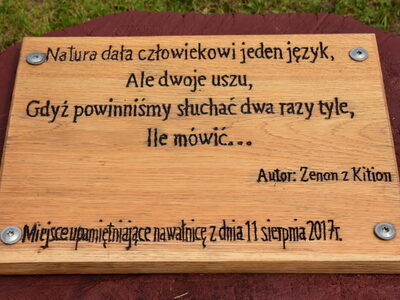 Natura dała człowiekowi jeden język,
Ale dwoje uszu,
Gdyż powinniśmy słuchać dwa razy tyle,
Ile mówić...
Autor: Zenon z Kition
Miejsce upamiętniające nawałnicę z dnia 11 sierpnia 2017r.